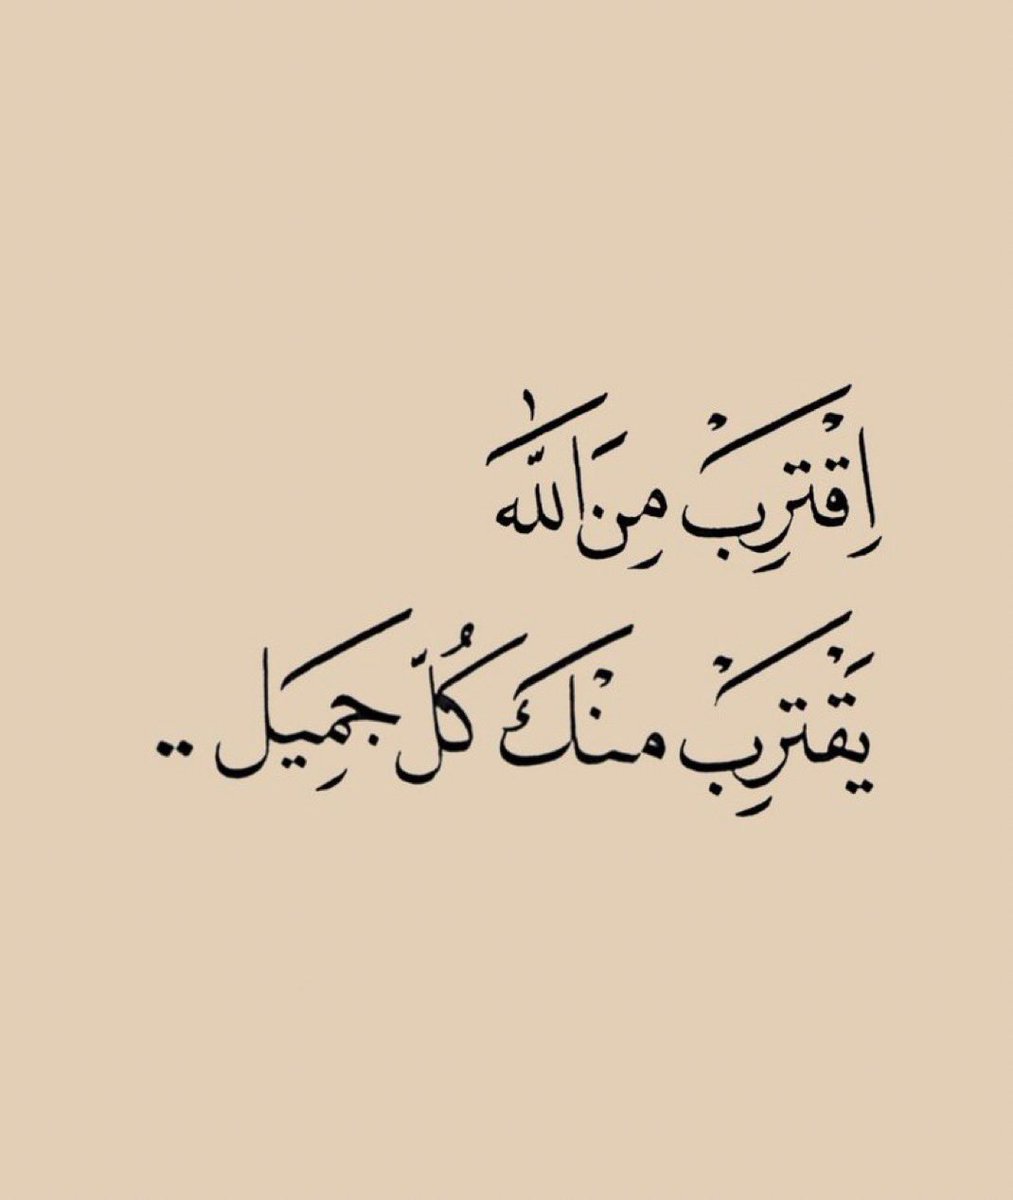 اِقْتَرِبْ مِنَ اللَّه
يَقْتَرِبْ منْكَ كُلّ جَمِيَل ..